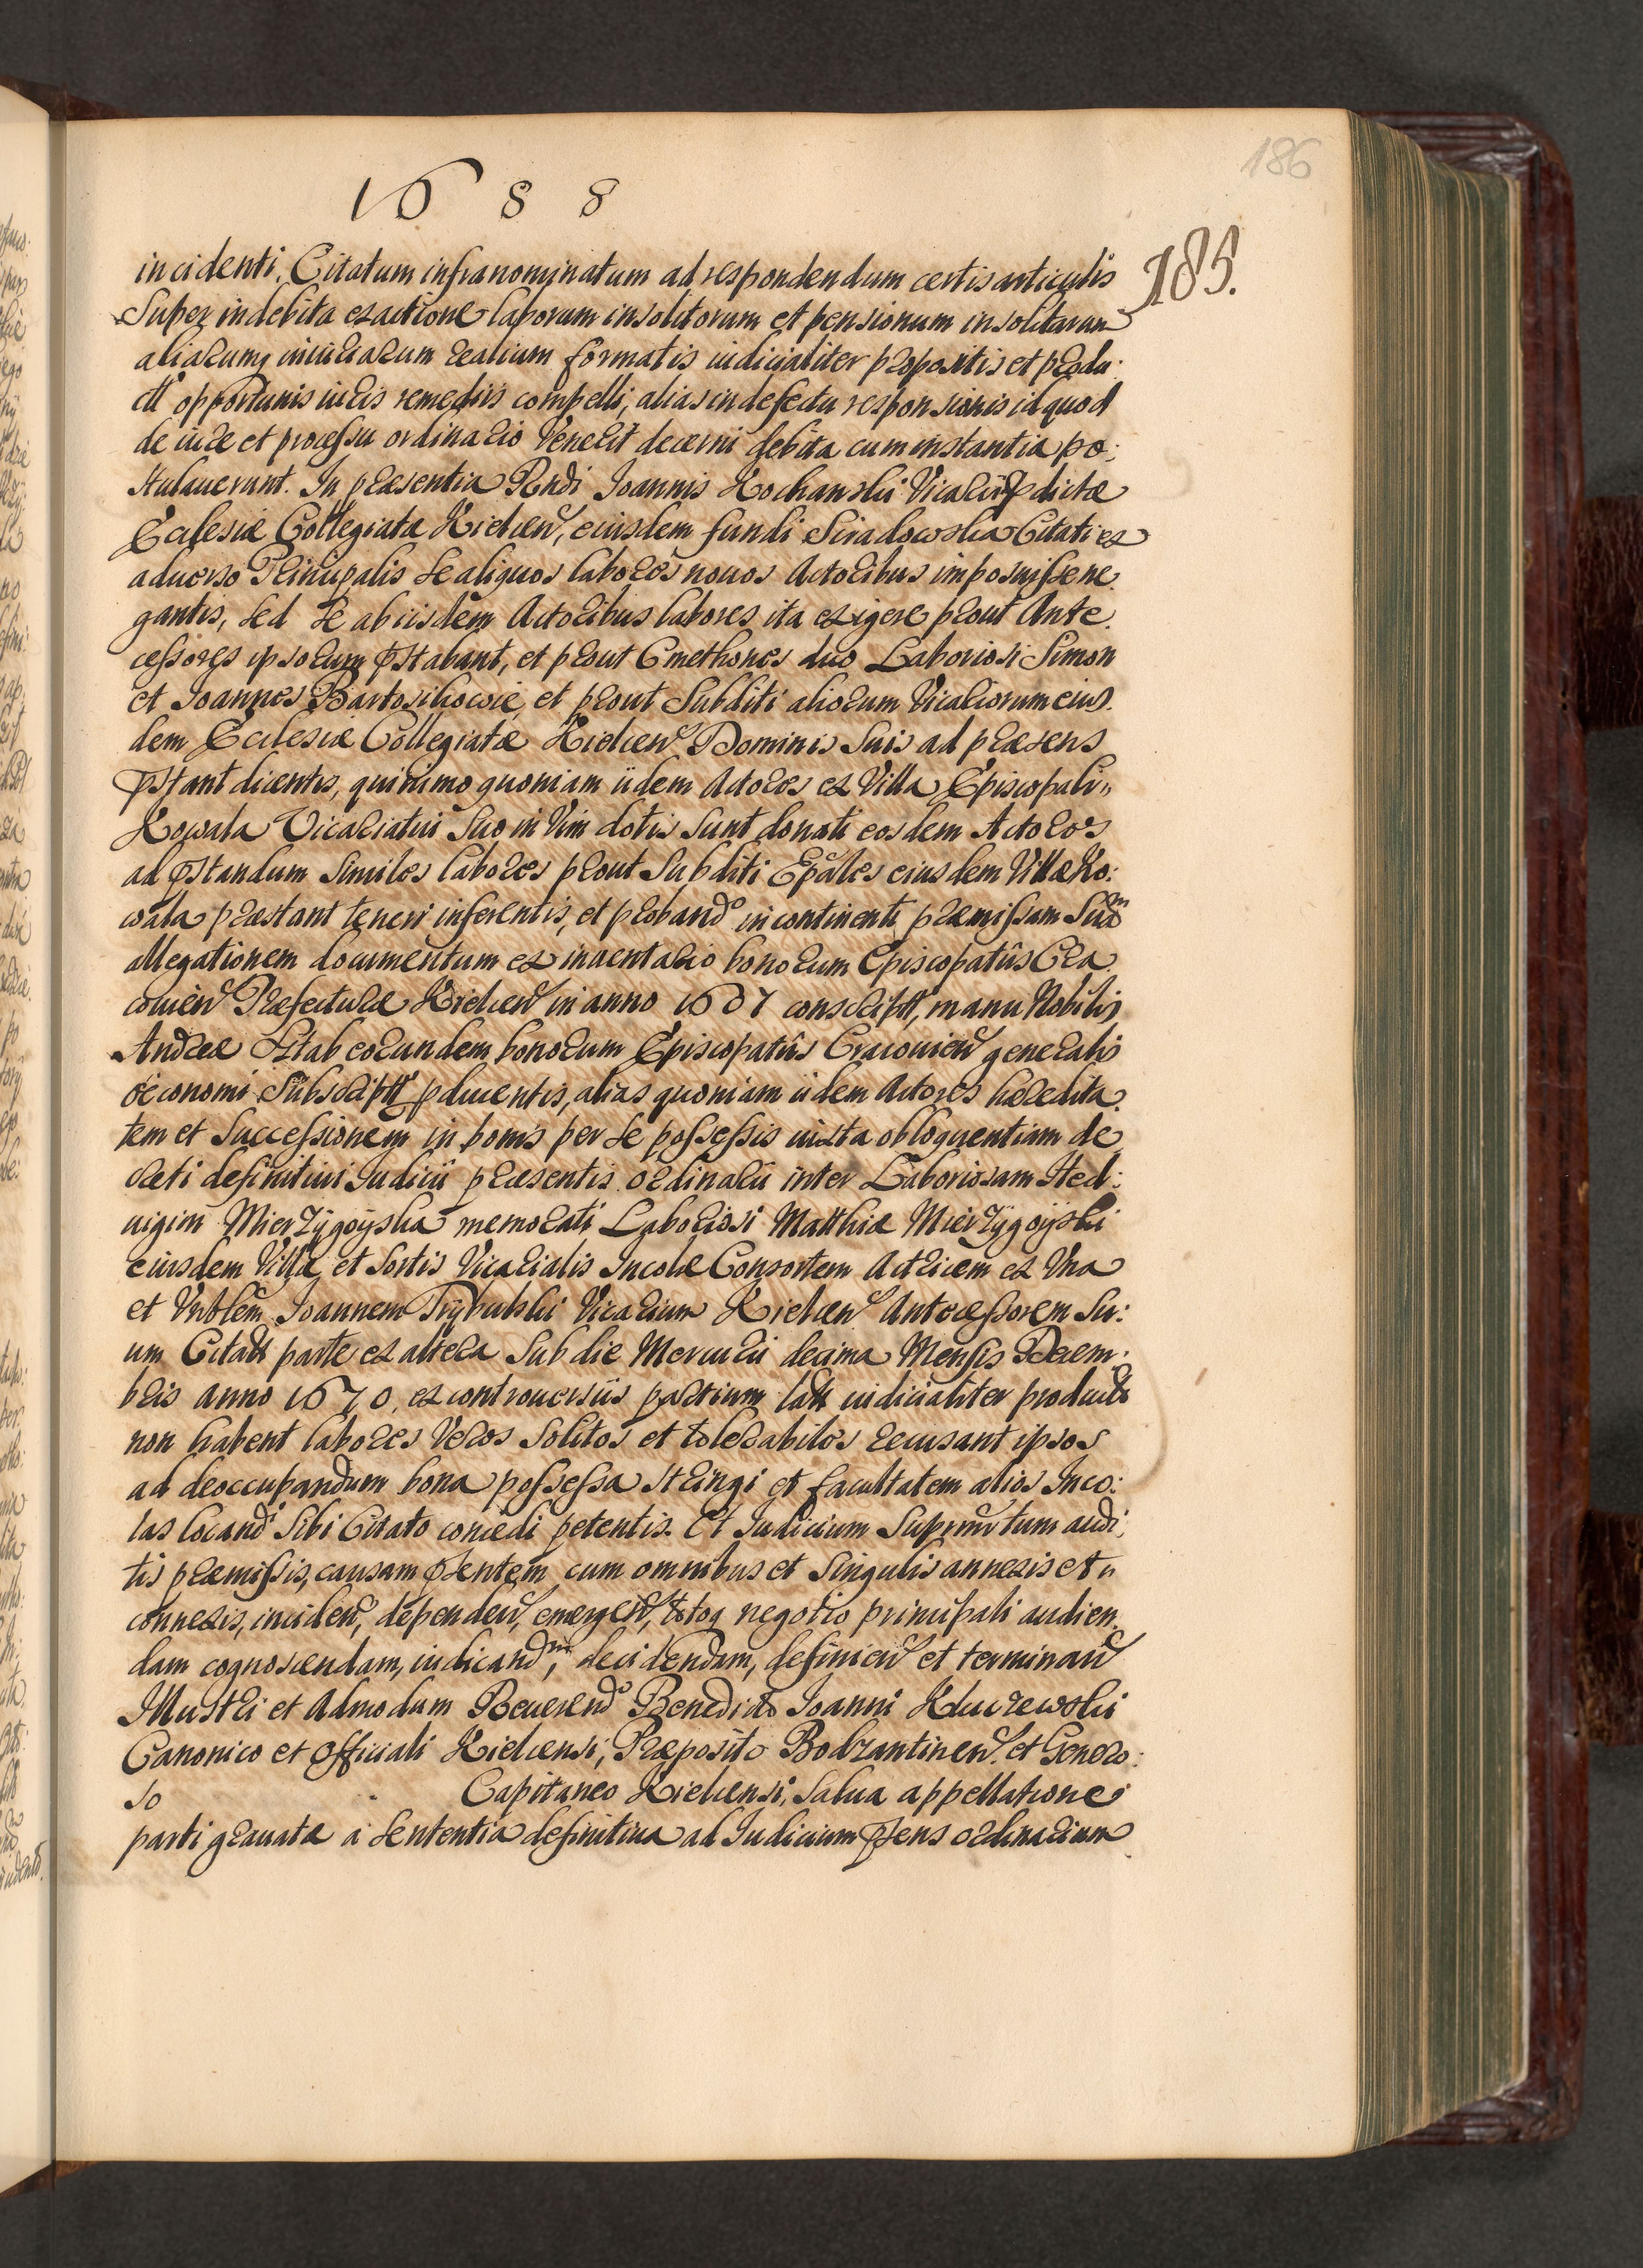 186
1688
185.
incidenti. Citatum infranominatum ad respondendum certis articulis
Super indebita exactione laborum insolitorum et pensionum insolitarum
aliarumq iniuriarum realium formatis iudicialiter propositis et produ:
ctt opportunis iuris remediis compelli, alias in defectu responsionis id quod
de iure et processu ordinario Venerit decerni debita cum instantia po:
stulauerunt. In præsentia Rndi Joannis Kochanski Vicarii dictæ
Ecclesiæ Collegiatæ Kielcen, eiusdem fundi Siradowska Citati ex
aduerso Principalis se aliquos labores nouos Actoribus imposuisse ne
gantis, sed se ab iisdem Actoribus labores ita exigere prout Ante
cessores ipsorum pstabant, et prout Cmethones duo Laboriosi Simon
et Joannes Bartosikowie, et prout Subditi aliorum Vicariorum eius
dem Ecclesiæ Collegiatæ Kielcen Dominis Suis ad præsens
pstant dicentis, quinimo quoniam iidem Actores ex Villa Episcopali
Kowala Vicariatui Suo in Vim dotis sunt donati eosdem Actores
ad pstandum Similes labores prout Subditi Epales eiusdem Villæ Ko:
wala præstant teneri inferentis, et proband incontinenti præmissam Suam
allegationem documentum ex inuentario bonorum Episcopatûs Cra
couien Præfecturæ Kielcen in anno 1607 conscriptt, manu Nobilis
Andreæ eorundem bonorum Episcopatûs Cracouien generalis
œconomi Subscriptt pducentis, alias quoniam iidem Actores hæredita
tem et Successionem in bonis per se possessis iuxta obloquentiam de
creti definitiui Iudicii præsentis ordinarii inter Laboriosam Hed:
uigim Mierzÿgoÿska memorati Laboriosi Matthiæ Mierzÿgoÿski
eiusdem Villæ et Sortis Vicarialis Incolæ Consortem Actricem ex Vna
et Vnblem Joannem Trÿbulski Vicarium Kielcen Antecessorem Su:
um Citatt parte ex altera Sub die Mercurii decima Mensis Decem:
bris anno 1670, ex controuersiis partium latt iudicialiter product
non habent labores Veros Solitos et tolerabiles recusant ipsos
ad deoccupandum bona possessa stringi et facultatem alios Inco:
las locand Sibi Citato concedi petentis. Et Iudicium tum audi,
tis præmissis, causam psentem cum omnibus et Singulis annexis et
connexis, inciden, dependen, emergen, totoq negotio principali audien
dam cognoscendam, iudicandm, decidendam, definien et terminan
Illustri et Admodum Reuerend Benedicto Joanni Kluczewski
Canonico et Officiali Kielcensi, Præposito Bodzantinen et Genero:
so Capitaneo Kielcensi, Salua appellatione
parti grauatæ a Sententia definitiua ad Iudicium psens ordinarium